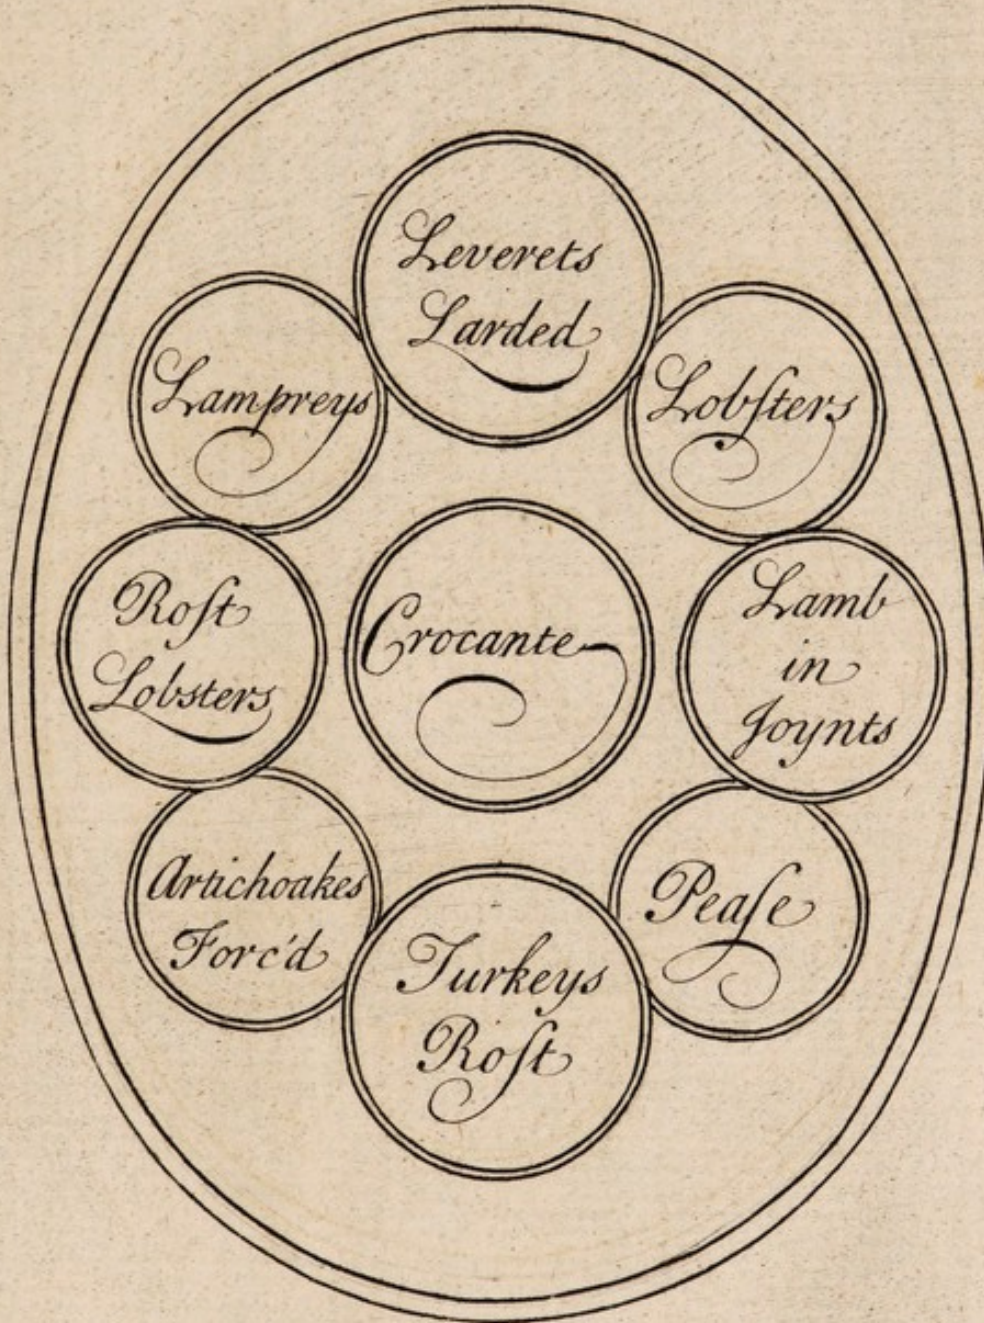 Leverets
Larded
Lampreys
Lobſters
Roſt
Lobsters
Crocante
Lamb
in
Joynts
Artichoakes
Forc'd
Peaſe
Turkeys
Roſt